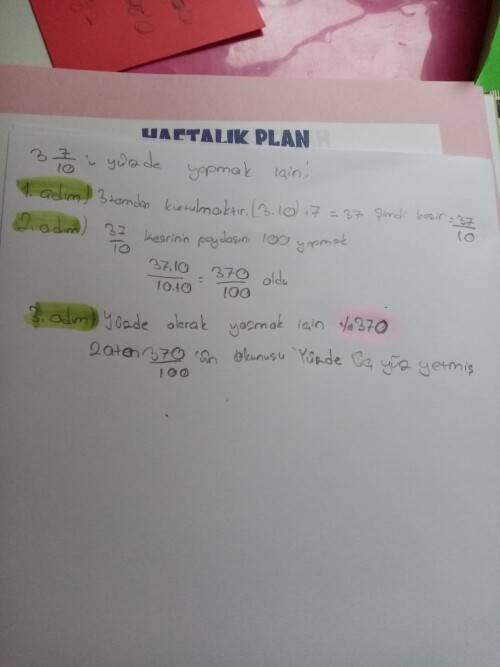 HAFTALIK PLAN
3 7/10 'u yüzde yapmak için;
1. adım) 3 tamdan kurtulmaktır. (3.10)+7 = 37 Şimdi kesir = 37/10
2. adım) 37/10 kesrinin paydasını 100 yapmak
37.10/10.10 = 370/100 oldu
3. adım) Yüzde olarak yazmak için %370
Zaten 370/100 'ün okunuşu Yüzde üç yüz yetmiş